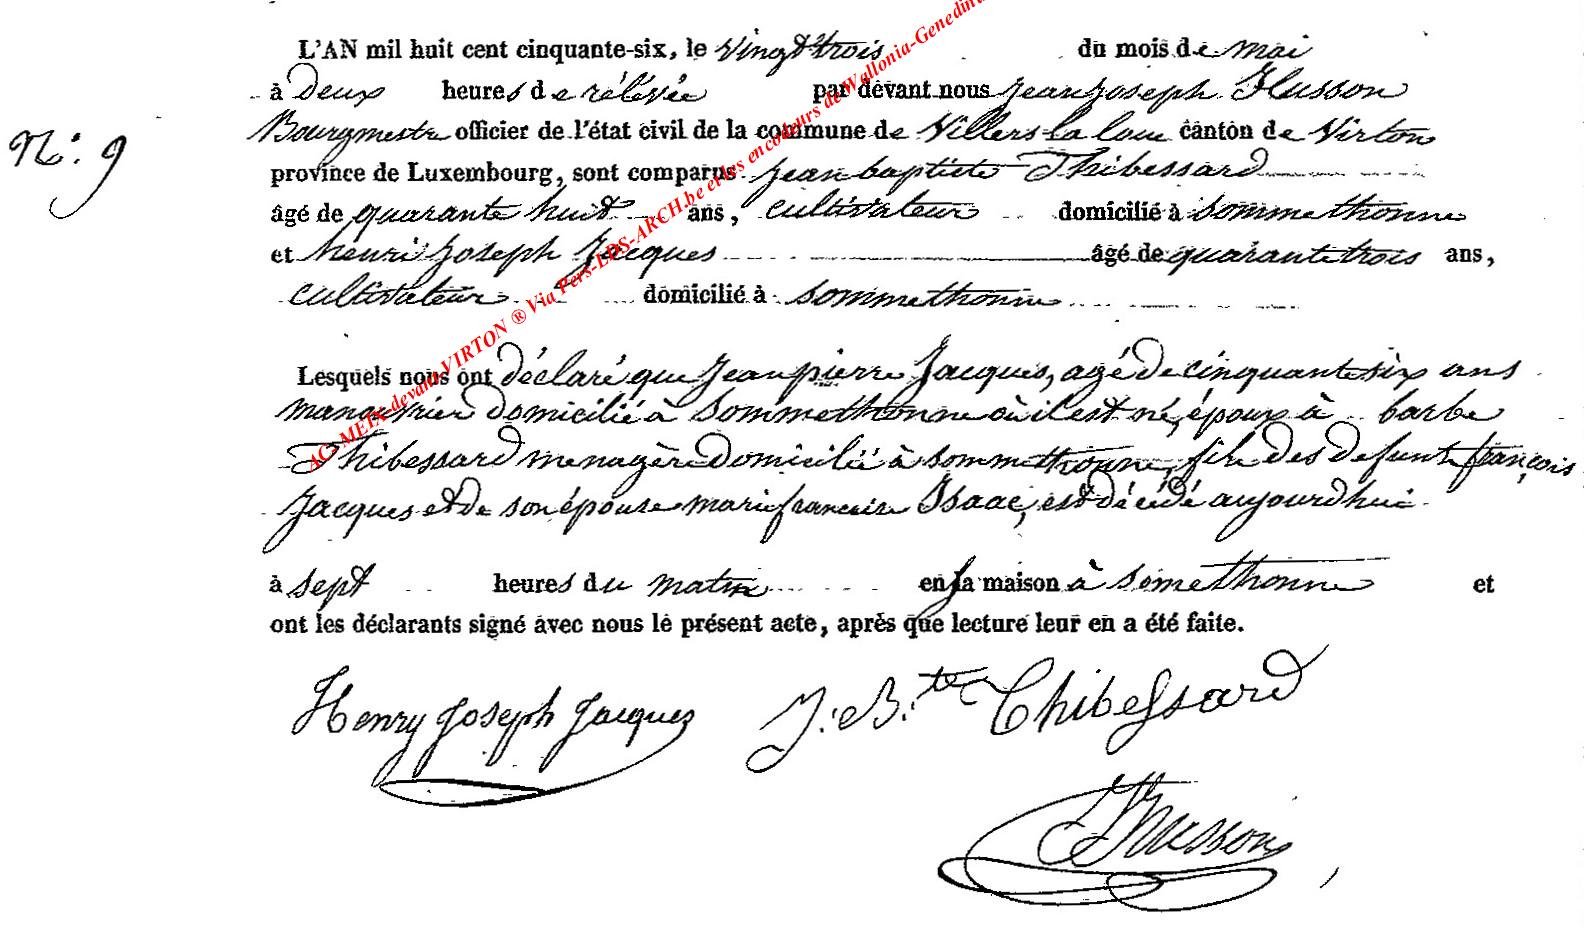 L'AN mil huit cent cinquante-six, le vingt trois du mois de mai
à deux heures de rélévée par devant nous jean joseph Husson
Bourgmestre officier de l'état civil de la commune de Villers la loue canton de Virton
N: 9
province de Luxembourg, sont comparus jean baptiste Thibessard
âgé de quarante huit ans, cultivateur domicilié à sommethonne
et henri joseph Jacques âgé de quarante trois ans,
cultivateur domicilié à sommethonne
Lesquels nous ont déclaré que Jean pierre Jacques, agé de cinquante six ans
manouvrier domicilié à Sommethonne où il est né, époux à barbe
Thibessard menagère domicilié à sommethonne, fils des defunts françois
Jacques et de son épouse marie francoise Isaac, est décédé aujourdhui
à sept heures du matin en sa maison à sommethonne et
ont les déclarants signé avec nous le présent acte, après que lecture leur en a été faite.
Henry Joseph Jacques J: B:te Thibessard
JJHusson
AC-METX-devant-VIRTON ® Via Pers-LDS-ARCH.be et les encodeurs de Wallonia-Genedin